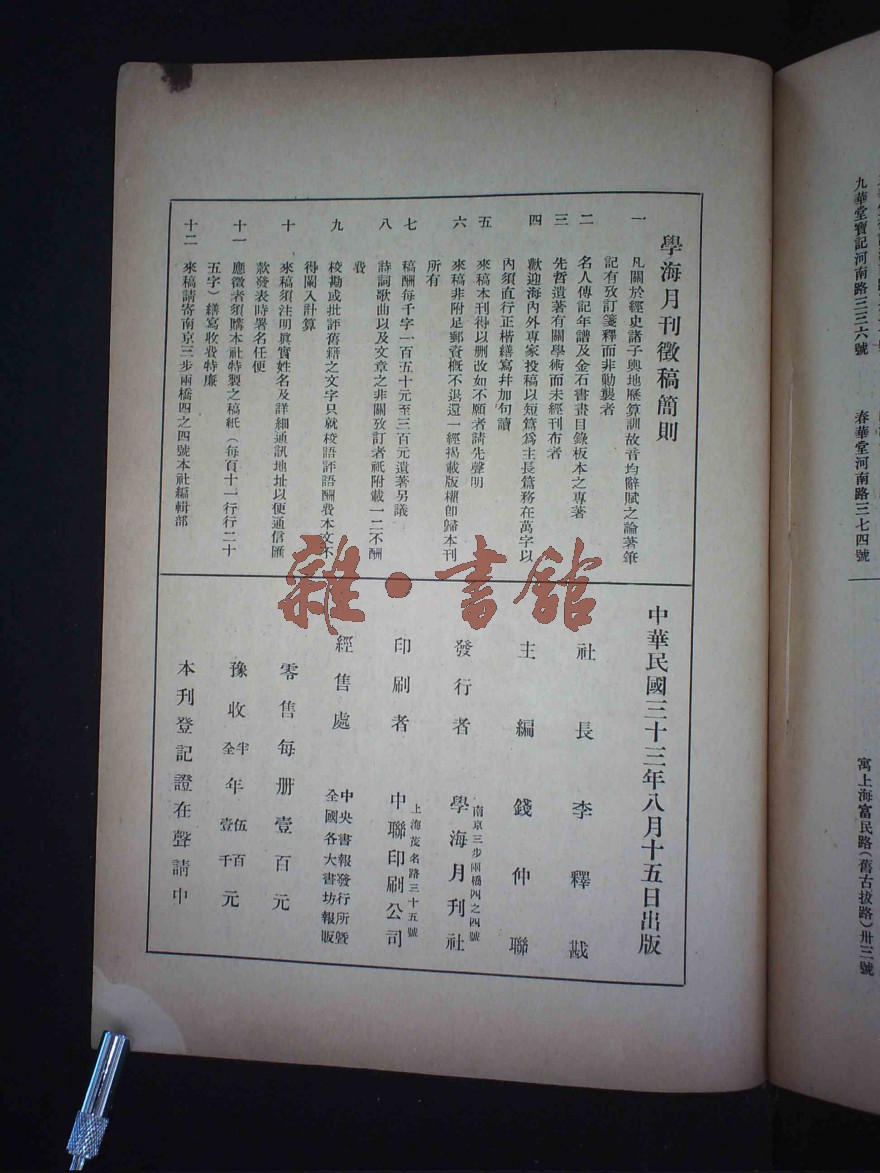 學海月刊徵稿簡則
一 凡關於經史諸子輿地歷算訓故音均辭賦之論著筆
記有攷訂箋釋而非勦襲者
二 名人傳記年譜及金石書畫目錄板本之專著
三 先哲遺著有關學術而未經刊布者
四 歡迎海內外專家投稿以短篇爲主長篇務在萬字以
內須直行正楷繕寫幷加句讀
五 來稿本刊得以刪改如不願者請先聲明
六 來稿非附足郵資概不退還一經揭載版權卽歸本刊
所有
七 稿酬每千字一百五十元至三百元遺著另議
八 詩詞歌曲以及文章之非關攷訂者祇附載一二不酬
費
九 校勘或批評舊籍之文字只就校語評語酬費本文不
得闌入計算
十 來稿須注明眞實姓名及詳細通訊地址以便通信匯
款發表時署名任便
十一 應徵者須購本社特製之稿紙（每頁十一行行二十
五字）繕寫收費特廉
十二 來稿請寄南京三步兩橋四之四號本社編輯部
中華民國三十三年八月十五日出版
社長 李釋戡
主編 錢仲聯
發行者 學海月刊社
南京三步兩橋四之四號
印刷者 中聯印刷公司
上海茂名路三十五號
經售處 中央書報發行所暨
全國各大書坊報販
零售每册壹百元
豫收半年伍百元
全年壹千元
本刊登記證在聲請中
雜·書館
九華堂寶記河南路三三六號
春華堂河南路三七四號
寓上海富民路（舊古拔路）卅三號